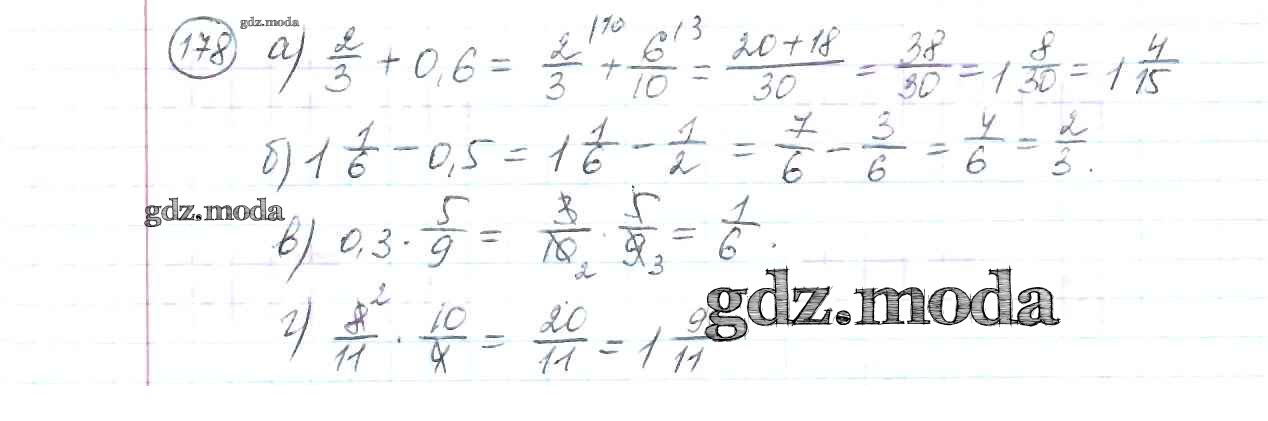 gdz.moda
178 а) 2/3 + 0,6 = 2/3 |10 + 6/10 |3 = 20+18/30 = 38/30 = 1 8/30 = 1 4/15
б) 1 1/6 − 0,5 = 1 1/6 − 1/2 = 7/6 − 3/6 = 4/6 = 2/3.
gdz.moda
в) 0,3 · 5/9 = 3/10 2 · 5/9 3 = 1/6.
gdz.moda
г) 8 2/11 · 10/4 = 20/11 = 1 9/11